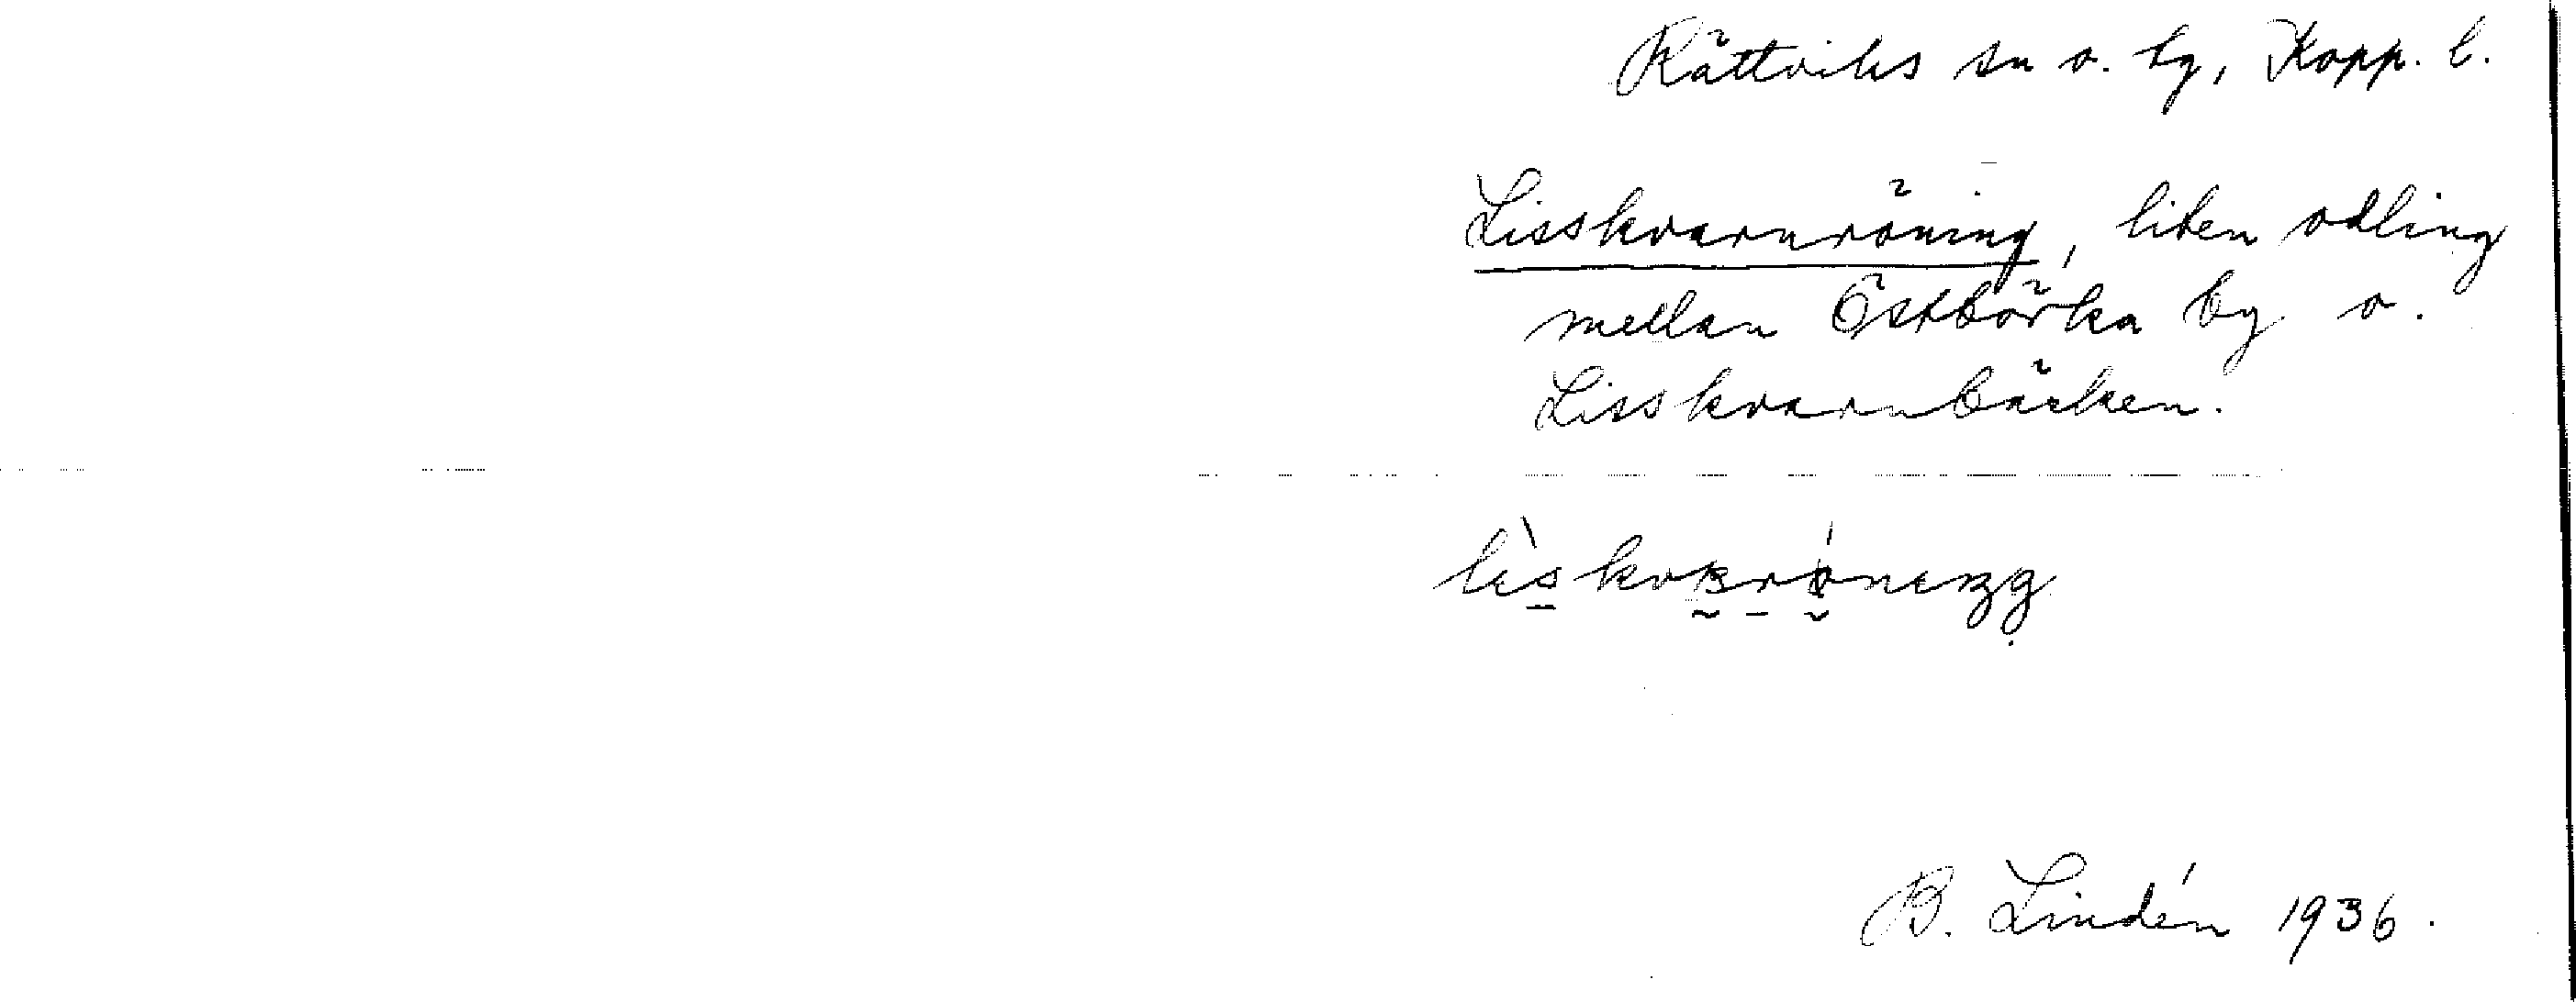 Rättviks sn o. by, Kopp. l.
Lisskvarnröning, liten odling
mellan Östbörka by o.
Lisskvarnbäcken.
B. Lindén 1936.